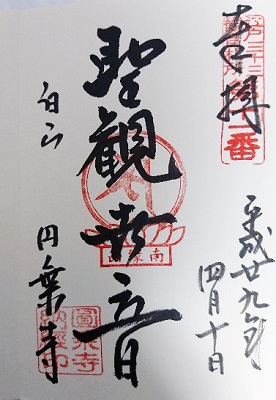 奉拝
平成廿九年
四月十日
聖観世音
白山
円乗寺
一番
圓乗寺
納経印